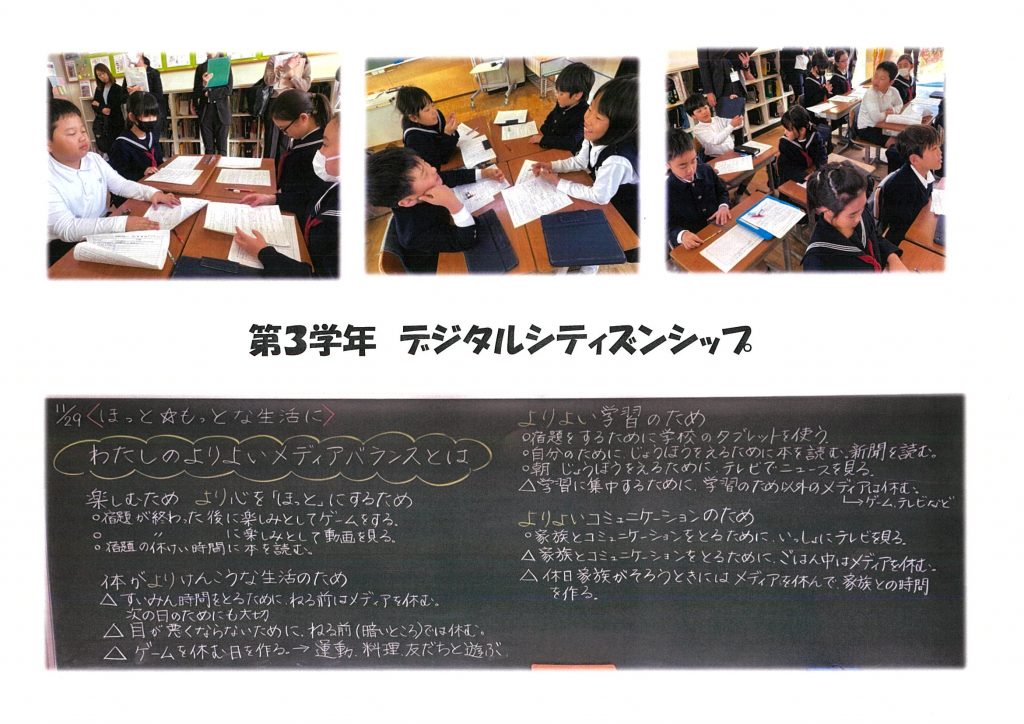 第3学年 デジタルシティズンシップ
11/29 〈ほっと☆もっとな生活に〉
わたしのよりよいメディアバランスとは
楽しむため より心を「ほっと」にするため
○宿題が終わった後に楽しみとしてゲームをする。
○ 〃 に楽しみとして動画を見る。
○宿題の休けい時間に本を読む。
体がよりけんこうな生活のため
△すいみん時間をとるために、ねる前はメディアを休む。
次の日のためにも大切
△目が悪くならないために、ねる前(暗いところ)では休む。
△ゲームを休む日を作る。→運動、料理、友だちと遊ぶ
よりよい学習のため
○宿題をするために学校のタブレットを使う
○自分のために、じょうほうをえるために本を読む、新聞を読む。
○朝、じょうほうをえるために、テレビでニュースを見る。
△学習に集中するために、学習のため以外のメディアは休む。
→ゲーム、テレビなど
よりよいコミュニケーションのため
○家族とコミュニケーションをとるために、いっしょにテレビを見る。
△家族とコミュニケーションをとるために、ごはん中はメディアを休む。
△休日家族がそろうときにはメディアを休んで、家族との時間
を作る。